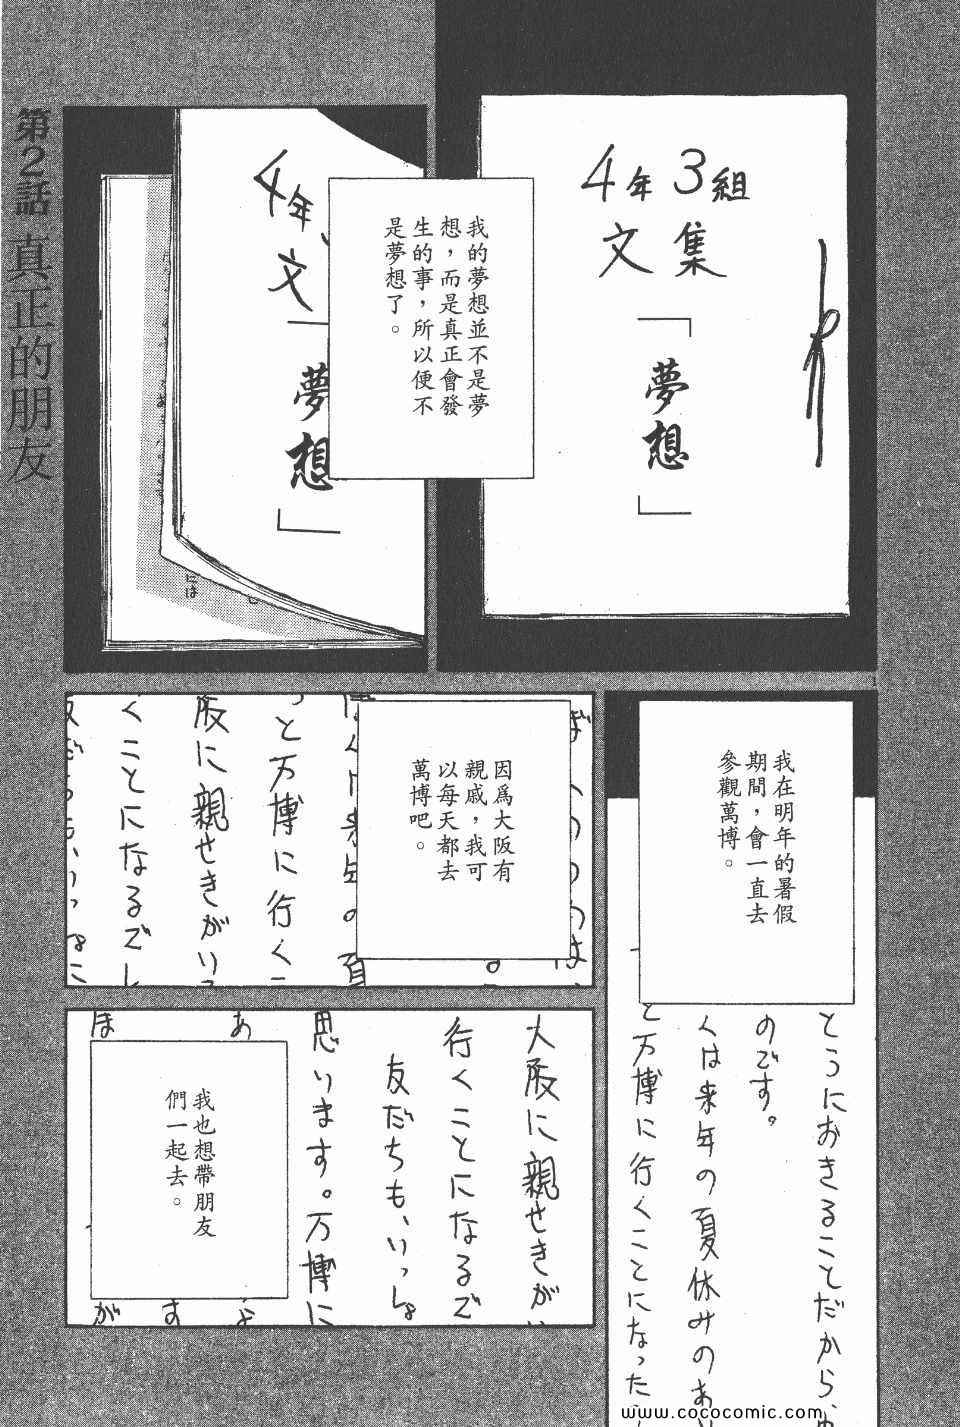 4年3組
文集
「夢想」
我的夢想並不是夢
想，而是真正會發
生的事，所以便不
是夢想了。
4年、
文
「夢想」
には
第2話 真正的朋友
我在明年的暑假
期間，會一直去
參觀萬博。
とうにおきることだから、
のです。
くは来年の夏休みのあ
と万博に行くことになった
因爲大阪有
親戚，我可
以每天都去
萬博吧。
っと万博に行くこ
阪に親せきがいる
くことになるでし
我也想帶朋友
們一起去。
大阪に親せきが
行くことになるで
友だちも、いっしょ
思います。万博に
あ
ほ
す
が
www.cococomic.com